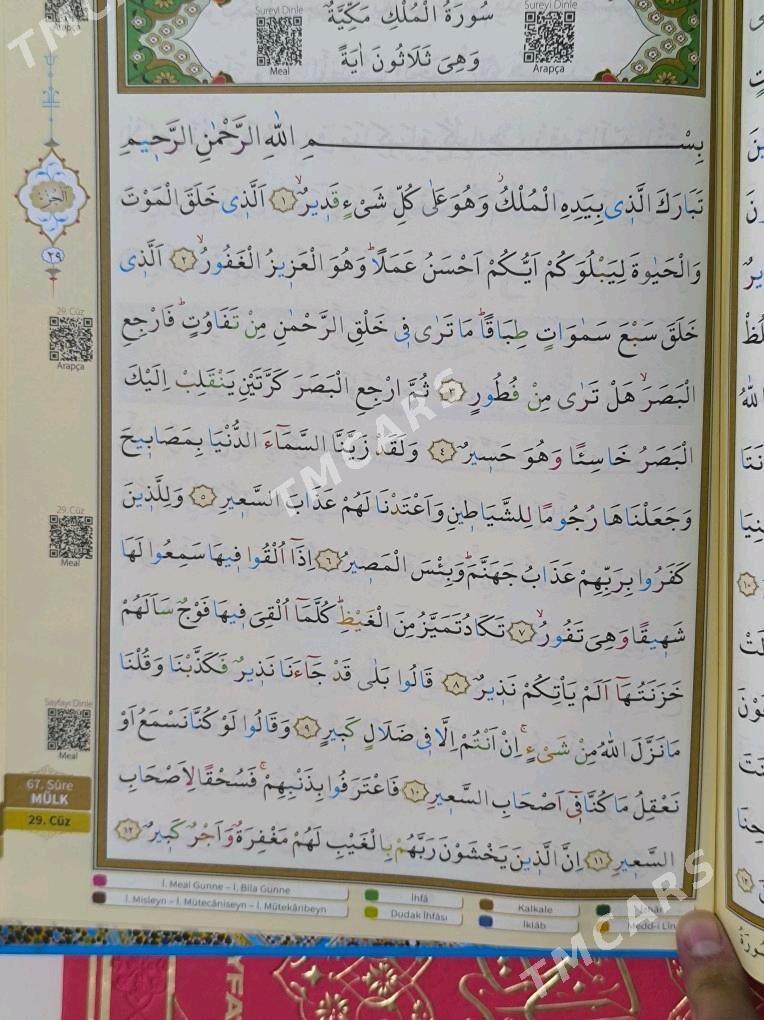 Sureyi Dinle
Sureyi Dinle
سُورَةُ الْمُلْكِ مَكِّيَّةٌ
وَهِىَ ثَلَاثُونَ اٰيَةً
Meal
Arapça
Arapça
بِسْمِ اللّٰهِ الرَّحْمٰنِ الرَّحٖيمِ
تَبَارَكَ الَّذٖى بِيَدِهِ الْمُلْكُۘ وَهُوَ عَلٰى كُلِّ شَىْءٍ قَدٖيرٌۙ ﴿١﴾ اَلَّذٖى خَلَقَ الْمَوْتَ
وَالْحَيٰوةَ لِيَبْلُوَكُمْ اَيُّكُمْ اَحْسَنُ عَمَلًاؕ وَهُوَ الْعَزٖيزُ الْغَفُورُۙ ﴿٢﴾ اَلَّذٖى
خَلَقَ سَبْعَ سَمٰوَاتٍ طِبَاقًاؕ مَا تَرٰى فٖى خَلْقِ الرَّحْمٰنِ مِنْ تَفَاوُتٍؕ فَارْجِعِ
الْبَصَرَۙ هَلْ تَرٰى مِنْ فُطُورٍ ﴿٣﴾ ثُمَّ ارْجِعِ الْبَصَرَ كَرَّتَيْنِ يَنْقَلِبْ اِلَيْكَ
الْبَصَرُ خَاسِئًا وَهُوَ حَسٖيرٌ ﴿٤﴾ وَلَقَدْ زَيَّنَّا السَّمَٓاءَ الدُّنْيَا بِمَصَابٖيحَ
وَجَعَلْنَاهَا رُجُومًا لِلشَّيَاطٖينِ وَاَعْتَدْنَا لَهُمْ عَذَابَ السَّعٖيرِ ﴿٥﴾ وَلِلَّذٖينَ
كَفَرُوا بِرَبِّهِمْ عَذَابُ جَهَنَّمَؕ وَبِئْسَ الْمَصٖيرُ ﴿٦﴾ اِذَٓا اُلْقُوا فٖيهَا سَمِعُوا لَهَا
شَهٖيقًا وَهِىَ تَفُورُۙ ﴿٧﴾ تَكَادُ تَمَيَّزُ مِنَ الْغَيْظِؕ كُلَّمَٓا اُلْقِىَ فٖيهَا فَوْجٌ سَاَلَهُمْ
خَزَنَتُهَٓا اَلَمْ يَأْتِكُمْ نَذٖيرٌ ﴿٨﴾ قَالُوا بَلٰى قَدْ جَٓاءَنَا نَذٖيرٌ فَكَذَّبْنَا وَقُلْنَا
مَا نَزَّلَ اللّٰهُ مِنْ شَىْءٍۚ اِنْ اَنْتُمْ اِلَّا فٖى ضَلَالٍ كَبٖيرٍ ﴿٩﴾ وَقَالُوا لَوْ كُنَّا نَسْمَعُ اَوْ
نَعْقِلُ مَا كُنَّا فٖٓى اَصْحَابِ السَّعٖيرِ ﴿١٠﴾ فَاعْتَرَفُوا بِذَنْبِهِمْۚ فَسُحْقًا لِاَصْحَابِ
السَّعٖيرِ ﴿١١﴾ اِنَّ الَّذٖينَ يَخْشَوْنَ رَبَّهُمْ بِالْغَيْبِ لَهُمْ مَغْفِرَةٌ وَاَجْرٌ كَبٖيرٌ ﴿١٢﴾
٢٩
29. Cüz
Arapça
29. Cüz
Meal
Sayfayı Dinle
Meal
67. Sûre
MÜLK
29. Cüz
İ. Meal Gunne – İ. Bila Gunne
İ. Misleyn – İ. Mütecâniseyn – İ. Mütekâribeyn
İhfâ
Dudak İhfâsı
Kalkale
İklâb
Medd-i Lîn
TMCARS
TMCARS
TMCARS
TMCARS